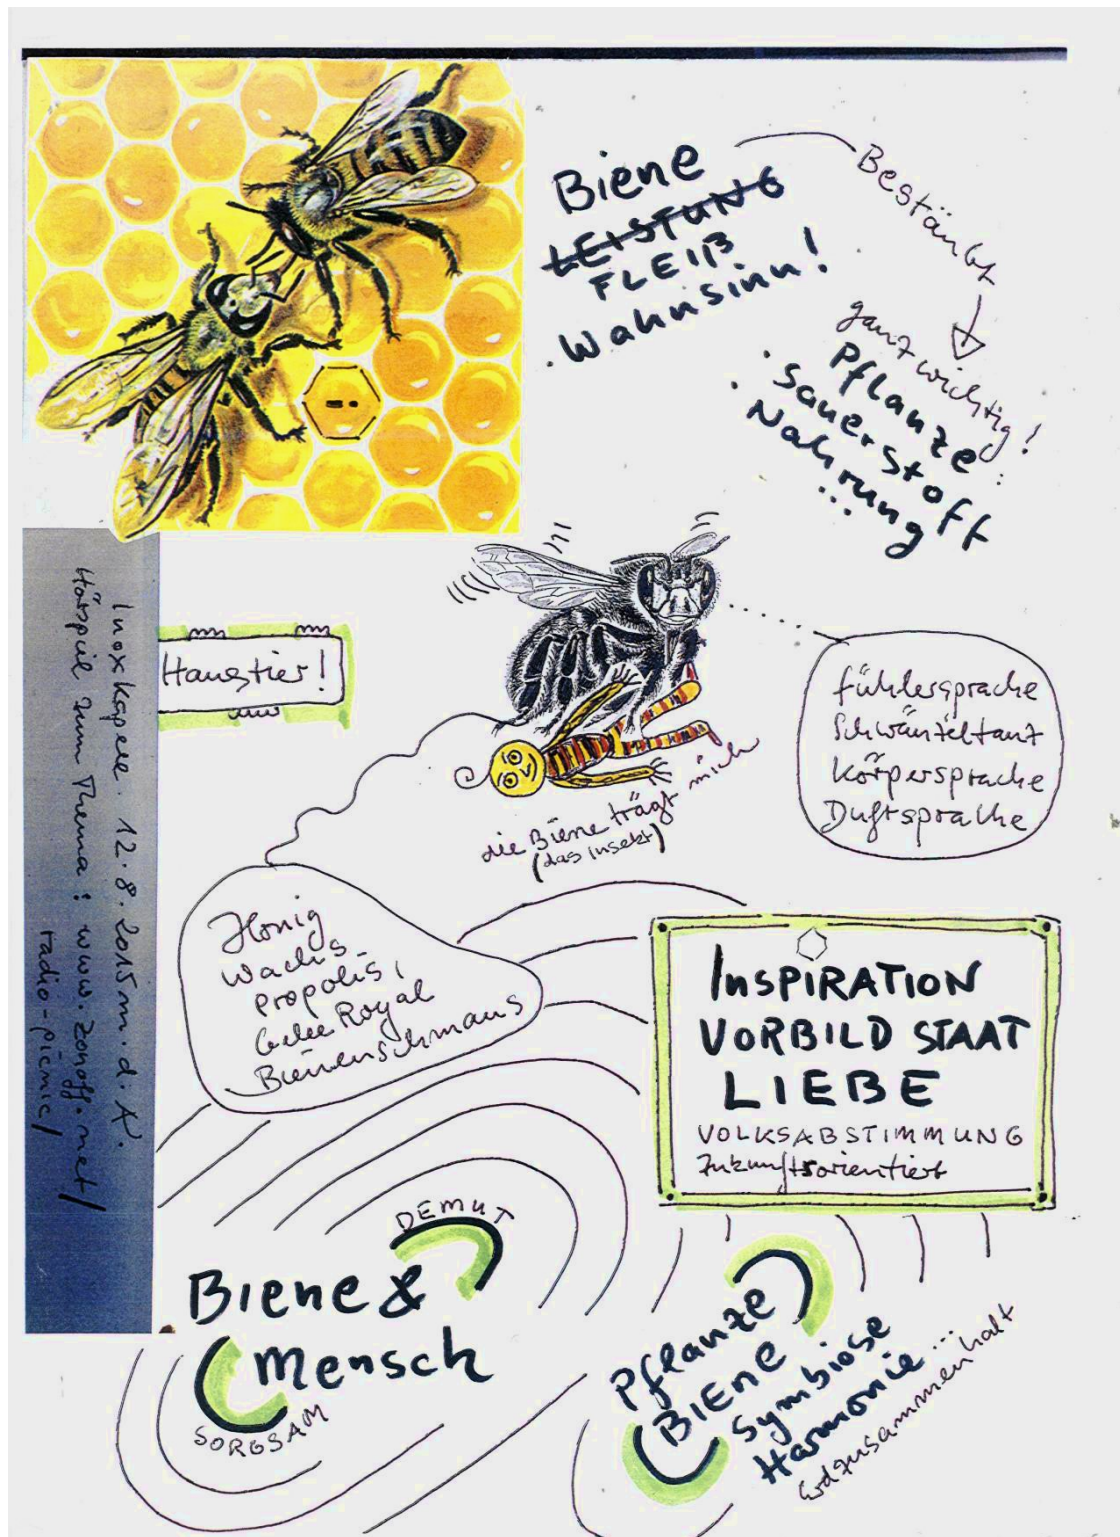 Biene
LEISTUNG
FLEIß
. Wahnsinn!
Bestäubt
ganz wichtig!
. Pflanze
. Sauerstoff
Nahrung
...
Haustier!
Inoxkapell. 12.8.2015 m.d.A.
Hörspiel zum Thema: www.zonoff.net/
radio-picnic/
fühlersprache
Schwänzeltanz
Körpersprache
Duftsprache
die Biene trägt mich
(das Insekt)
Honig
Wachs
Propolis,
Gelee Royal
Bienenschmaus
INSPIRATION
VORBILD STAAT
LIEBE
VOLKSABSTIMMUNG
Zukunftsorientiert
DEMUT
Biene &
Mensch
SORGSAM
Pflanze
BIENE
Symbiose
Harmonie...
Erdzusammenhalt